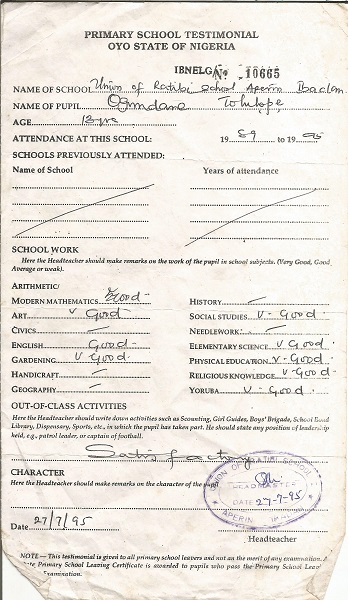 PRIMARY SCHOOL TESTIMONIAL
OYO STATE OF NIGERIA
IBNELGA No 10665
NAME OF SCHOOL Union of Ratibi School Aperin Ibadan
NAME OF PUPIL Ogundare Tolulope
AGE 13yrs
ATTENDANCE AT THIS SCHOOL: 19 89 to 19 95
SCHOOLS PREVIOUSLY ATTENDED:
Name of School Years of attendance
SCHOOL WORK
Here the Headteacher should make remarks on the work of the pupil in school subjects. (Very Good, Good, Average or weak).
ARITHMETIC/
MODERN MATHEMATICS Good HISTORY
ART V Good SOCIAL STUDIES V. Good
CIVICS NEEDLEWORK
ENGLISH Good ELEMENTARY SCIENCE V Good
GARDENING V Good PHYSICAL EDUCATION V. Good
HANDICRAFT RELIGIOUS KNOWLEDGE V. Good
GEOGRAPHY YORUBA V. Good
OUT-OF-CLASS ACTIVITIES
Here the Headteacher should write down activities such as Scounting, Girl Guides, Boys' Brigade, School Band
Library, Dispensary, Sports, etc., in which the pupil has taken part. He should state any position of leadership
held, e.g., patrol leader, or captain of football.
Satisfactory
CHARACTER
Here the Headteacher should make remarks on the character of the pupil
UNION OF RATIBI SCHOOL
HEADMASTER
DATE 27-7-95
APERIN
Date 27/7/95
Headteacher
NOTE — This testimonial is given to all primary school leavers and not on the merit of any examination. A
Primary School Leaving Certificate is awarded to pupils who pass the Primary School
Examination.